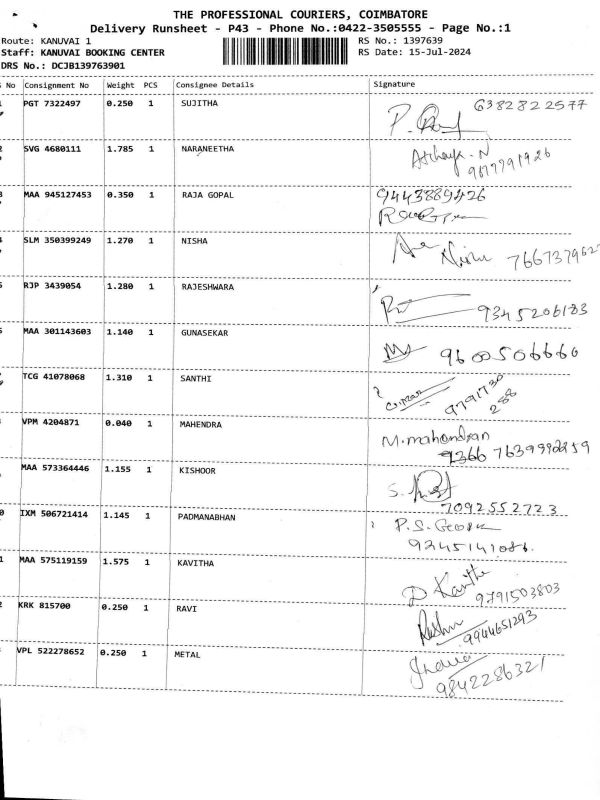 THE PROFESSIONAL COURIERS, COIMBATORE
Delivery Runsheet - P43 - Phone No.:0422-3505555 - Page No.:1
Route: KANUVAI 1 RS No.: 1397639
Staff: KANUVAI BOOKING CENTER RS Date: 15-Jul-2024
DRS No.: DCJB139763901
No Consignment No Weight PCS Consignee Details Signature
PGT 7322497 0.250 1 SUJITHA 6382822577
SVG 4680111 1.785 1 NARANEETHA
MAA 945127453 0.350 1 RAJA GOPAL 9443889426
SLM 350399249 1.270 1 NISHA
RJP 3439054 1.280 1 RAJESHWARA 9345206183
MAA 301143603 1.140 1 GUNASEKAR 9600506660
TCG 41078068 1.310 1 SANTHI 9791730
288
VPM 4204871 0.040 1 MAHENDRA M.mahendran
MAA 573364446 1.155 1 KISHOOR
7092552723
IXM 506721414 1.145 1 PADMANABHAN P.S. George
MAA 575119159 1.575 1 KAVITHA
9791503803
KRK 815700 0.250 1 RAVI
9944651293
VPL 522278652 0.250 1 METAL
9842286321